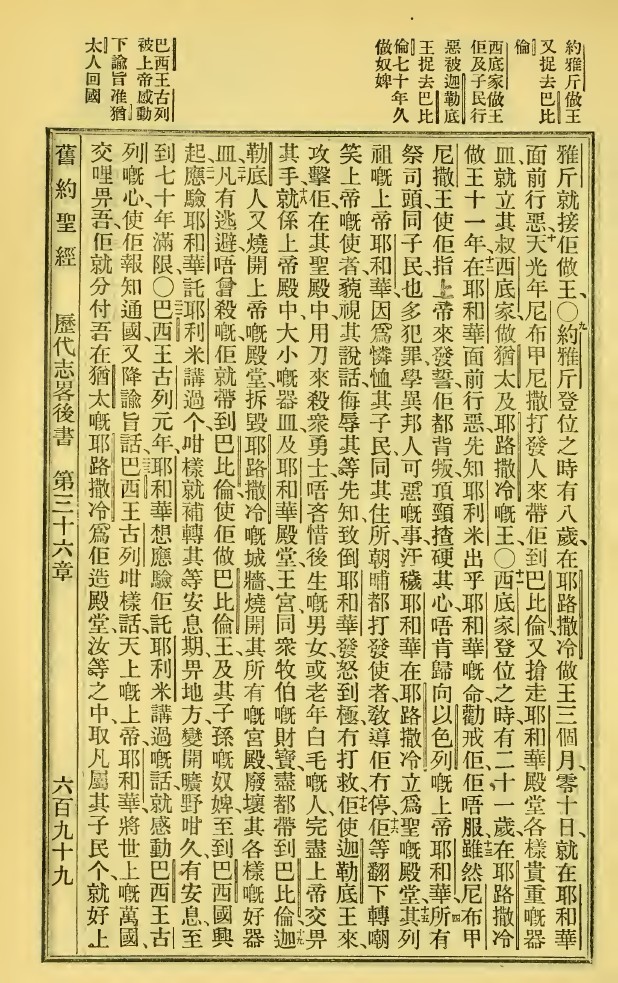 約雅斤做王
又捉去巴比
倫
西底家做王
佢及子民行
惡被迦勒底
王捉去巴比
倫七十年久
做奴婢
巴西王古列
被上帝感動
下諭旨准猶
太人回國
雅斤就接佢做王、〇九約雅斤登位之時有八歲、在耶路撒冷做王三個月、零十日、就在耶和華
面前行惡、十天光年尼布甲尼撒打發人來帶佢到巴比倫、又搶走耶和華殿堂各樣貴重嘅器
皿、就立其叔西底家做猶太及耶路撒冷嘅王、〇十一西底家登位之時有二十一歲、在耶路撒冷
做王十一年、十二在耶和華面前行惡、先知耶利米出乎耶和華嘅命勸戒佢、佢唔服、十三雖然尼布甲
尼撒王使佢指上帝來發誓、佢都背叛、頂頸揸硬其心、唔肯歸向以色列嘅上帝耶和華、十四所有
祭司頭同子民也多犯罪、學異邦人可惡嘅事、汙穢耶和華在耶路撒冷立爲聖嘅殿堂、十五其列
祖嘅上帝耶和華、因爲憐恤其子民、同其住所、朝晡都打發使者、敎導佢冇停、十六佢等翻下轉嘲
笑上帝嘅使者、藐視其說話、侮辱其等先知、致倒耶和華發怒到極、冇打救佢、十七使迦勒底王來、
攻擊佢、在其聖殿中、用刀來殺衆勇士、唔吝惜後生嘅男女、或老年白毛嘅人、完盡上帝交畀
其手、十八就係上帝殿中大小嘅器皿、及耶和華殿堂、王宮、同衆牧伯嘅財寶、盡都帶到巴比倫、十九迦
勒底人又燒開上帝嘅殿堂、拆毀耶路撒冷嘅城牆、燒開其所有嘅宮殿、廢壞其各樣嘅好器
皿、二十凡有逃避唔曾殺嘅、佢就帶到巴比倫、使佢做巴比倫王及其子孫嘅奴婢、至到巴西國興
起、應驗耶和華託耶利米講過个、咁樣就補轉其等安息期、畀地方變開曠野咁久、有安息、至
到七十年滿限、〇巴西王古列元年、耶和華想應驗佢託耶利米講過嘅話、就感動巴西王古
列嘅心、使佢報知通國、又降諭旨話、巴西王古列咁樣話、天上嘅上帝耶和華、將世上嘅萬國、
交哩畀吾、佢就分付吾在猶太嘅耶路撒冷、爲佢造殿堂、汝等之中、取凡屬其子民个、就好上
舊約聖經　歷代志畧後書　第三十六章　六百九十九